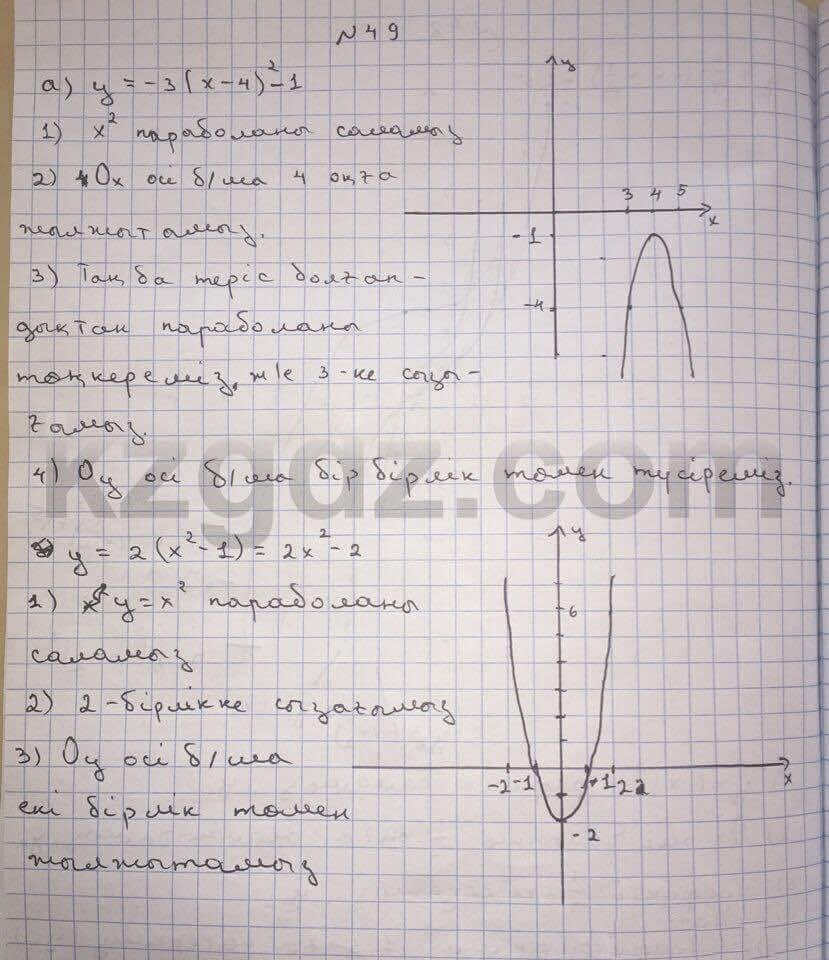 N 49
а) y = -3(x-4)² - 1
1) x² параболаны саламыз
2) Ox осі б/ша 4 оңға
жылжытамыз.
3) Таңба теріс болған-
дықтан параболаны
төңкереміз, ж/е 3-ке сығы-
ғамыз.
4) Oy осі б/ша бір бірлік төмен түсіреміз.
y = 2(x² - 1) = 2x² - 2
1) y = x² параболаны
саламыз
2) 2-бірлікке сығағамыз
3) Oy осі б/ша
екі бірлік төмен
жылжытамыз
y
3 4 5
x
-1
-4
y
6
-2 -1 1 2
x
-2
kzgdz.com